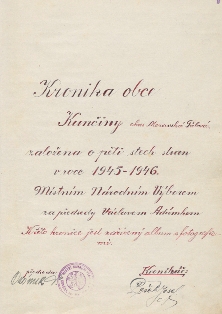 Kronika obce
Kunčiny okres Moravská Třebová.
založena o pěti stech stran
v roce 1945-1946.
Místním Národním Výborem
za předsedy Václava Adámka
K této kronice jest zařízený album s fotografie-
mi.
předseda:
Kronikář: